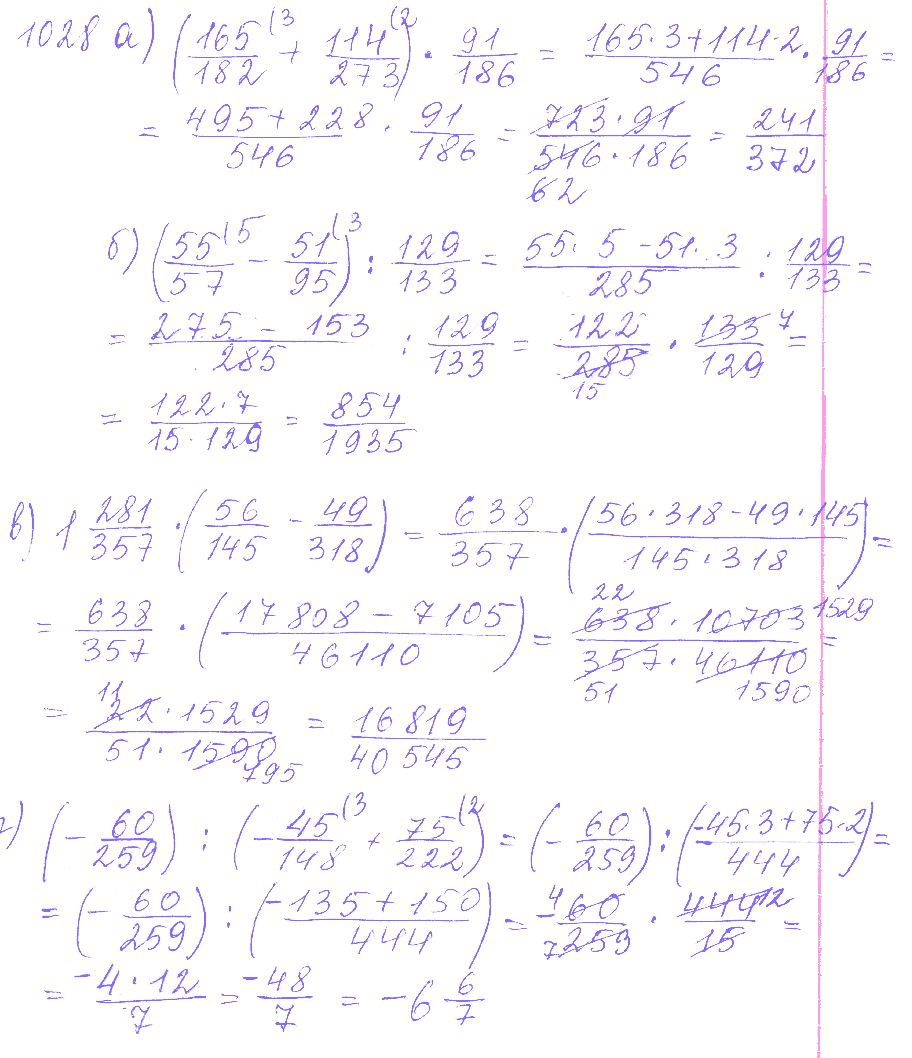 1028 а) (165/182 (3 + 114/273 (2) · 91/186 = (165·3+114·2)/546 · 91/186 =
= (495+228)/546 · 91/186 = (723·91)/(546·186) = 241/372
62
б) (55/57 (5 − 51/95 (3) : 129/133 = (55·5−51·3)/285 : 129/133 =
= (275−153)/285 : 129/133 = 122/285 · 133/129 7 =
15
= (122·7)/(15·129) = 854/1935
в) 1 281/357 · (56/145 − 49/318) = 638/357 · ((56·318−49·145)/(145·318)) =
22
= 638/357 · ((17808−7105)/46110) = (638·10703)/(357·46110) 1529 =
51 1590
11
= (22·1529)/(51·1590) = 16819/40545
795
г) (−60/259) : (−45/148 (3 + 75/222 (2) = (−60/259) : ((−45·3+75·2)/444) =
= (−60/259) : ((−135+150)/444) = 4 −60/7 259 · 444/15 12 =
= (−4·12)/7 = −48/7 = −6 6/7